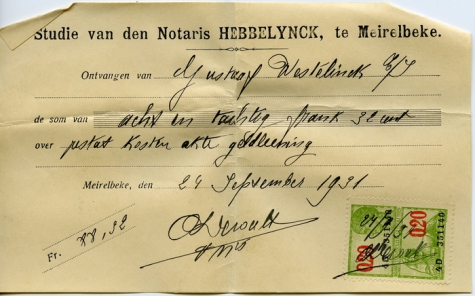 Studie van den Notaris HEBBELYNCK, te Meirelbeke.
Ontvangen van Gustaaf Westelinck
de som van acht en tachtig frank 32 cent
over kosten akte geldleening
Meirelbeke, den 24 September 1931
Fr. 88,32
0.20
0.20
4D 351146